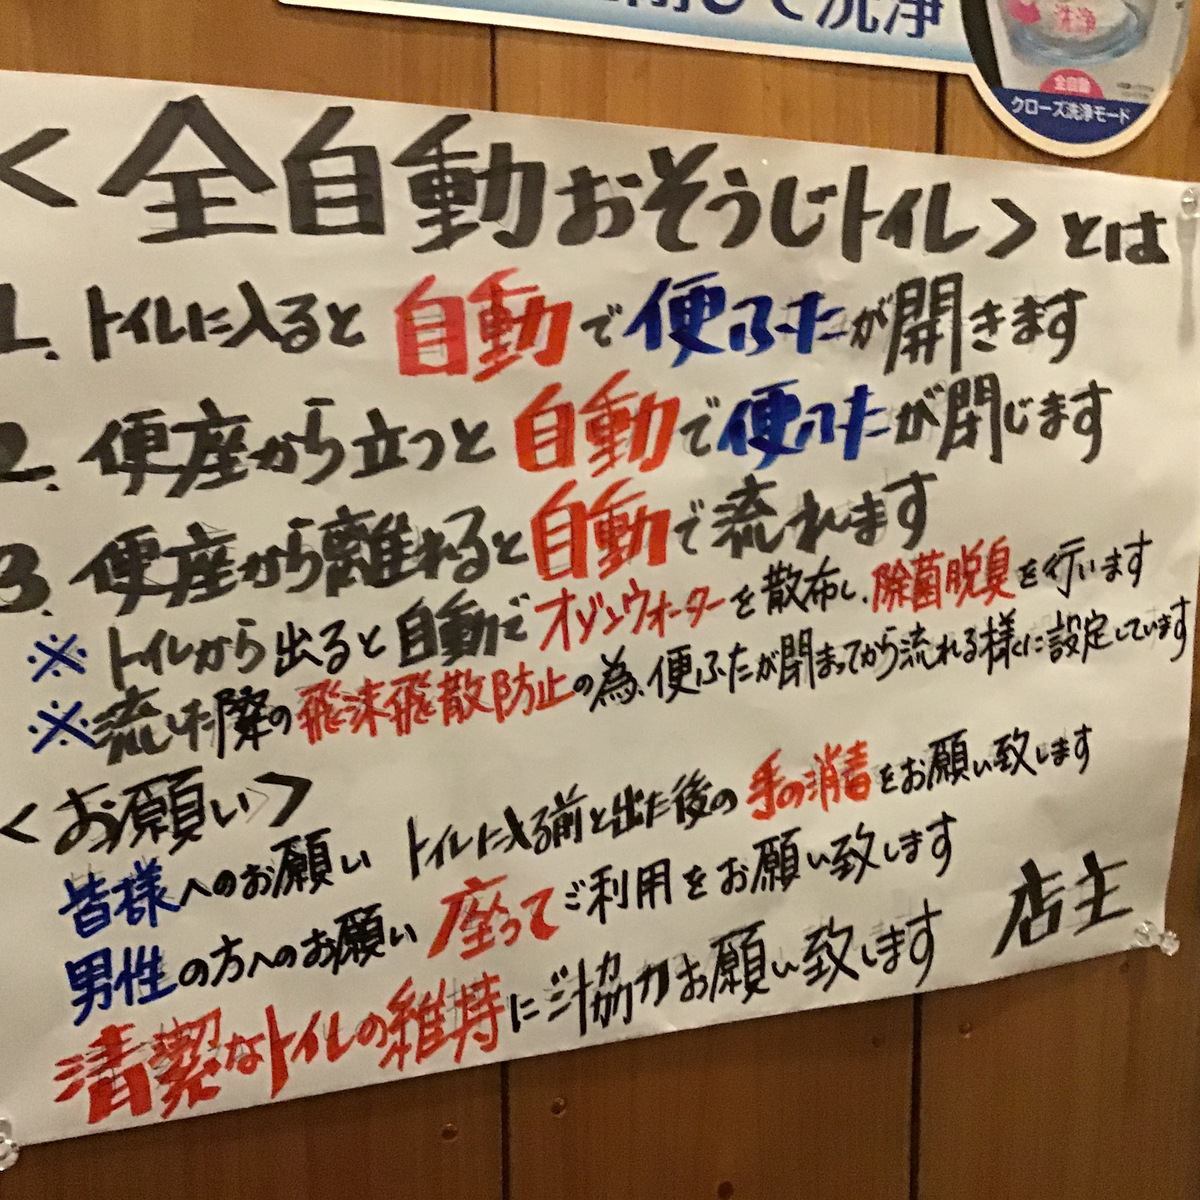 して洗浄
洗浄
全自動
クローズ洗浄モード
<全自動おそうじトイレ>とは
1. トイレに入ると自動で便ふたが開きます
2. 便座から立つと自動で便ふたが閉じます
3. 便座から離れると自動で流れます
※トイレから出ると自動でオゾンウォーターを散布し、除菌脱臭を行います
※流した際の飛沫飛散防止の為、便ふたが閉まってから流れる様に設定しています
<お願い>
皆様へのお願い トイレに入る前と出た後の手の消毒をお願い致します
男性の方へのお願い 座ってご利用をお願い致します
清潔なトイレの維持にご協力お願い致します 店主